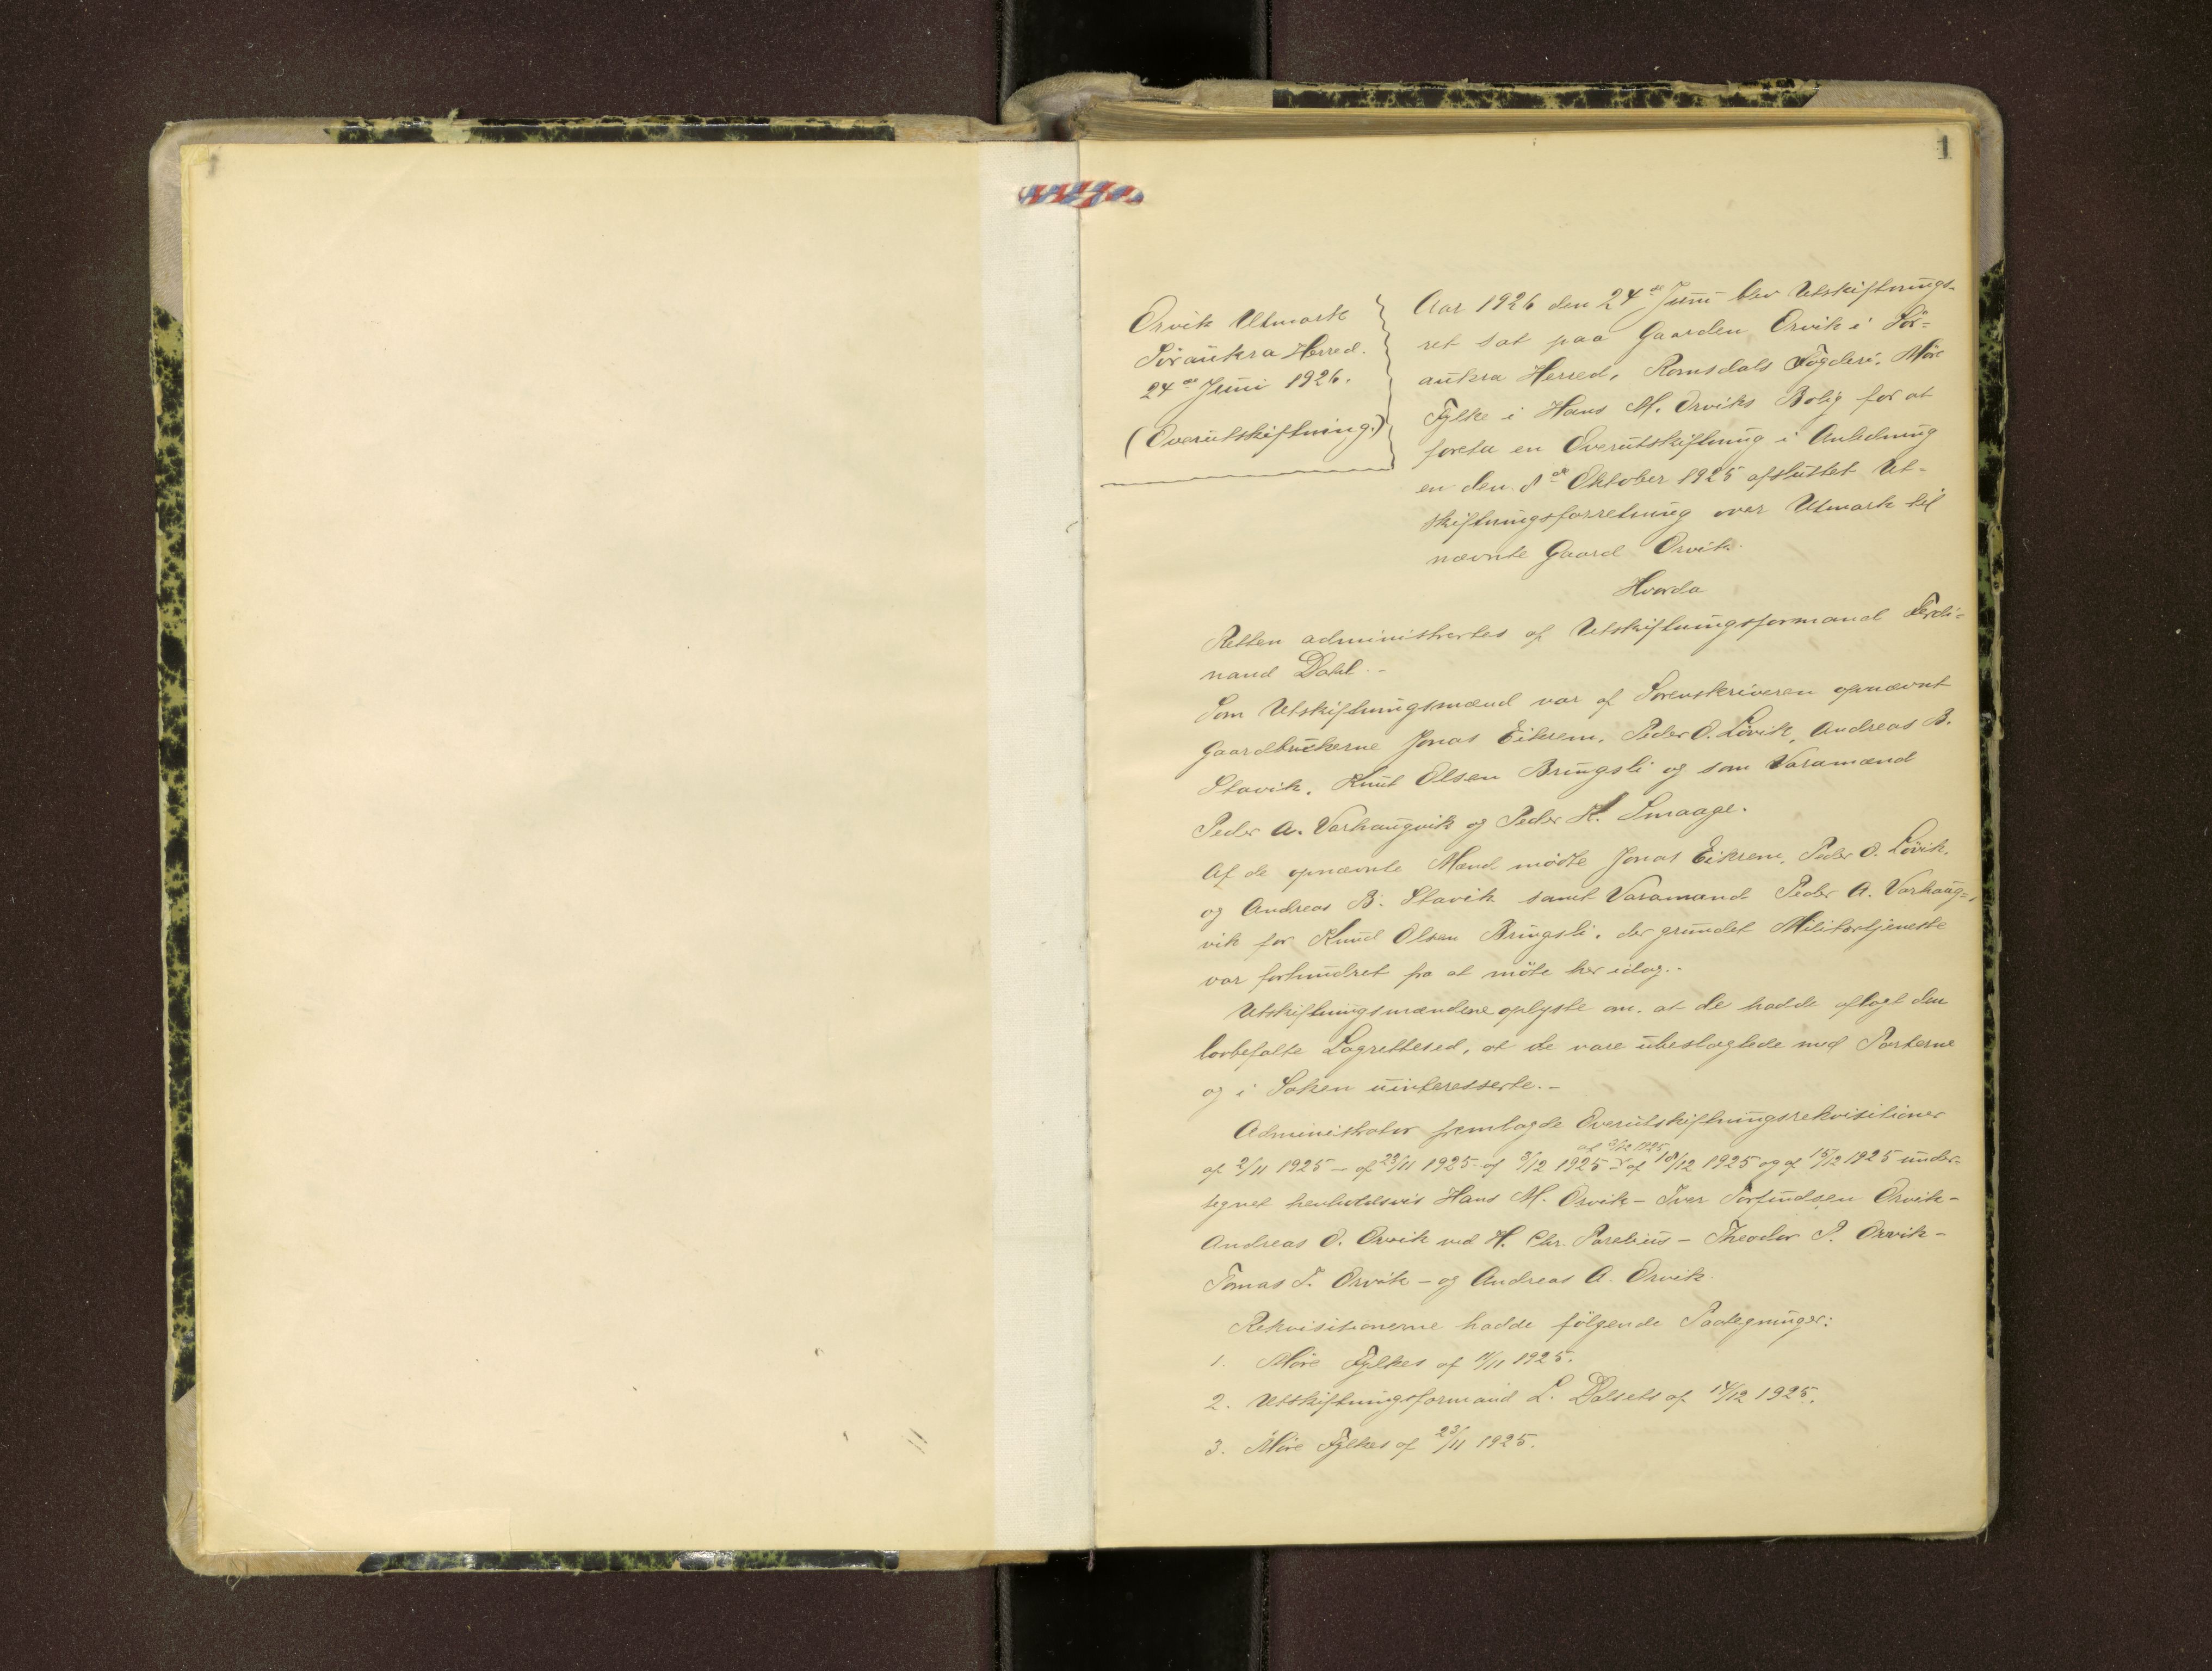 1
Orvik Utmark
Søraukra Herred.
24de Juni 1926.
(Overutskiftning.)
Aar 1926 den 24de Juni blev Utskiftnings-
ret sat paa Gaarden Orvik i Sør=
aukra Herred, Romsdals Fogderi, Møre
Fylke i Hans M. Orviks Bolig for at
foreta en Overutskiftning i Anledning
en den 1de Oktober 1925 afsluttet Ut-
skiftningsforretning over Utmark til
nævnte Gaard Orvik.
Hvorda
Retten administrertes af Utskiftningsformand Ferdi=
nand Dahl.-
Som Utskiftningsmænd var af Sorenskriveren opnævnt
Gaardbrukerne Jonas Eikrem, Peder O. Løvik, Andreas B.
Stavik, Knut Olsen Bringsli og som Varamænd
Peder A. Varhaugvik og Peder K. Smaage.
Af de opnævnte Mænd mødte Jonas Eikrem, Peder O. Løvik,
og Andreas B. Stavik samt Varamand Peder A. Varhaug=
vik for Knud Olsen Bringsli, der grundet Militærtjeneste
var forhindret fra at møte her idag.-
Utskiftningsmændene oplyste om, at de hadde aflagt den
lovbefalte Lagrettesed, at de vare ubeslægtede med Parterne
og i Saken uinteresserte.-
Administrator fremlagde Overutskiftningsrekvisitioner
af 2/11 1925 - af 23/11 1925 - af 3/12 1925 - af 18/12 1925 og af 15/12 1925 under-
af 3/12 1925
tegnet henholdsvis Hans M. Orvik - Iver Torfindsen Orvik -
Andreas O. Orvik ved H. Chr. Parelius - Theodor P. Orvik -
Tomas T. Orvik - og Andreas A. Orvik.
Rekvisitionerne hadde følgende Paategninger:
1. Møre Fylkes af 11/11 1925.
2. Utskiftningsformand L. Dalsets af 14/12 1925.
3. Møre Fylkes af 23/11 1925.